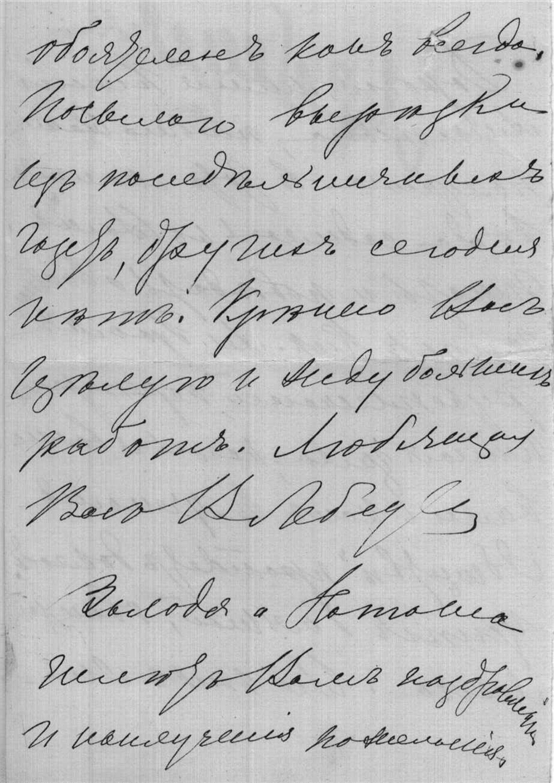 обозленъ какъ всегда.
Посылаю вырѣзки
изъ послѣднихъ
газетъ, другихъ сегодня
нѣтъ. Крѣпко Васъ
цѣлую и жду большихъ
работъ. Любящая
Васъ
Володя и Наташа
шлютъ Вамъ поздравленія
и наилучшія пожеланія.